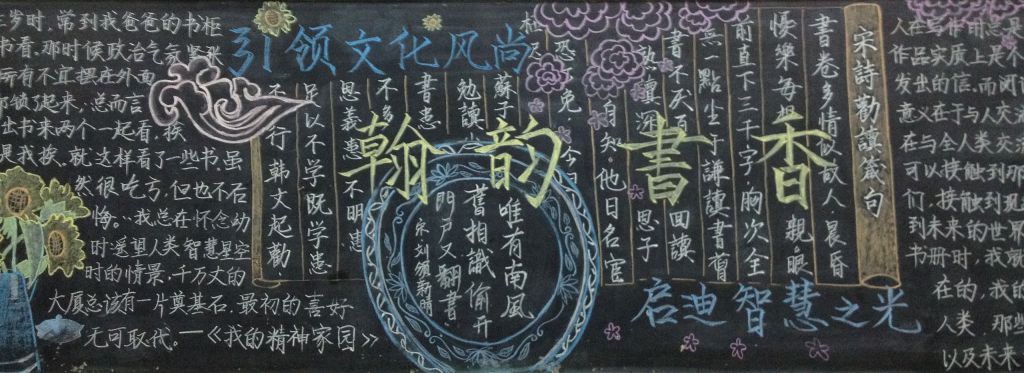 岁时,常到我爸爸的书柜
书看,那时候政治气氛紧张
所有不宜摆在外面
锁了起来,总而言
出书来两个一起看,挨
是我挨,就这样看了一些书,虽
然很吃亏,但也不后
悔...我总在怀念幼
时遥望人类智慧星空
时的情景,千万丈的
大厦总该有一片奠基石,最初的喜好
无可取代。—《我的精神家园》
引领文化风尚
翰韵書香
宋詩勸讀箴句
書卷多情似故人晨昏
憂樂每相親眼
前直下三千字胸次全
無一點塵 讀書
書不厌百回讀
熟讀深思子
自知他日名宦
恐免今
蘇子
勉讀
書患
不多
思義患不明患
足以不学既学患
不行韩文起勸
唯有南風
舊相識偷开
門戶又翻書
启迪智慧之光
人在写作时总是
作品实质上是
发出的信,而阅
意义在于与人交流
在与全人类交流
可以接触到那
们,接触到现
到未来的世界
书册时,我
在的,我的
人类,那些
以及未来